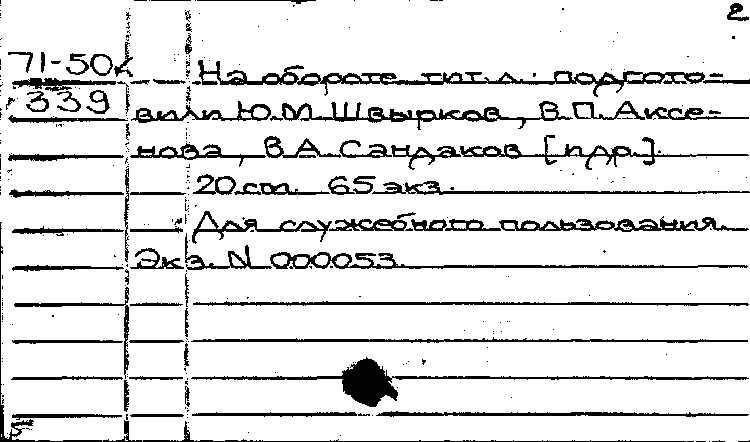 2
71-50
339
На обороте тит. л.: подгото-
вили Ю.М. Швырков, В.П. Аксе-
нова, В.А. Сандаков [и др.].
20 cm. 65 экз.
Для служебного пользования.
Экз. N 000053.
5